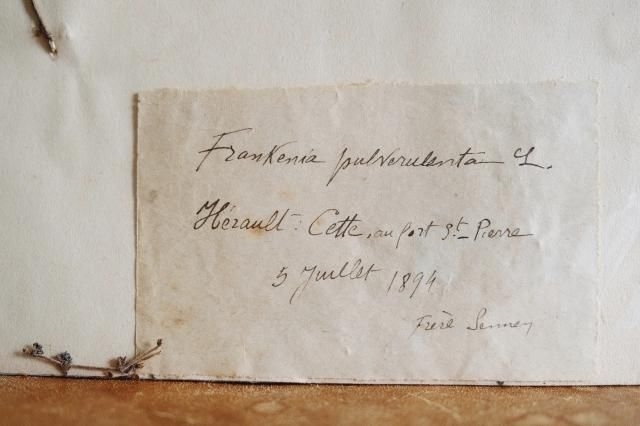 Frankenia pulverulenta L.
Hérault: Cette, au fort St. Pierre
5 Juillet 1894
Frère Sennen